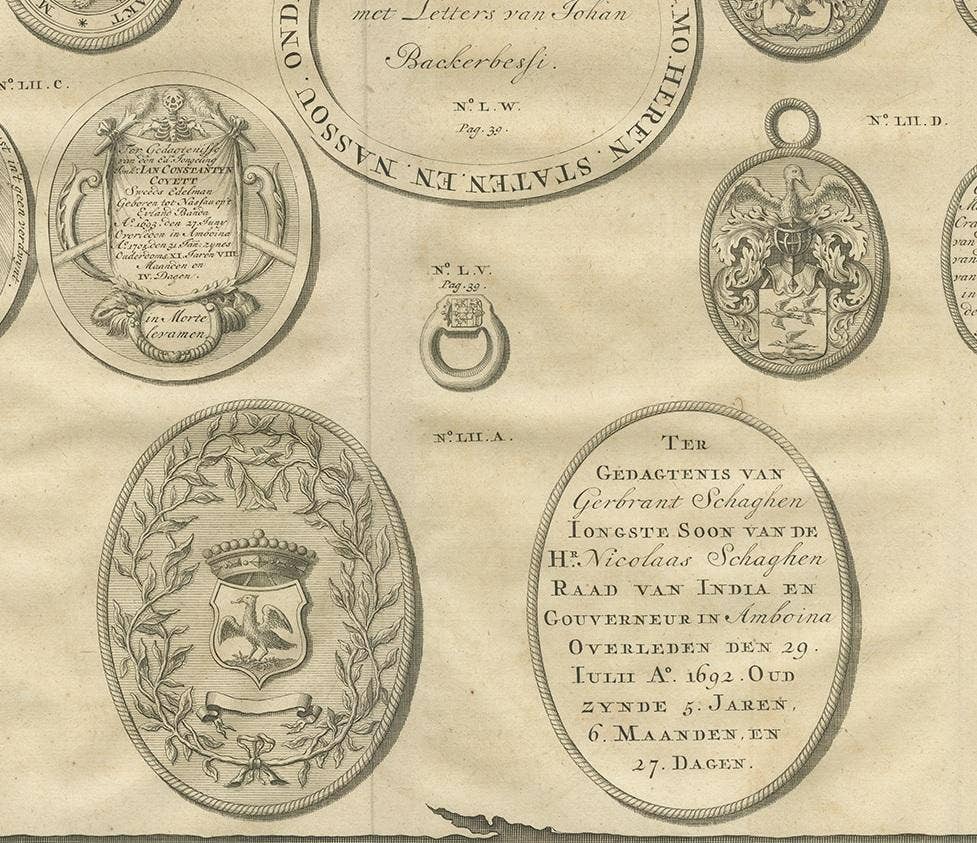 met Letters van Johan
Backerbessi.
Nº. L. W.
Pag. 39.
MO. HEREN. STATEN. EN. NASSOU. OND
Nº. LII. C.
Ter Gedagtenisse
van den Ed. Jongeling
IAN CONSTANTYN
COYETT
Sweeds Edelman
Geboren tot Nassau op't
Eyland Banda
Aº. 1693. den 27 Juny
Overleden in Amboina
Aº. 1705. den 21 Jan: zynes
Ouderdoms XI. Jaren VIII.
Maanden en
IV. Dagen.
in Morte
levamen.
Nº. LII. D.
Nº. L. V.
Pag. 39.
Nº. LII. A.
TER
GEDAGTENIS VAN
Gerbrant Schaghen
IONGSTE SOON VAN DE
HR. Nicolaas Schaghen
RAAD VAN INDIA EN
GOUVERNEUR IN Amboina
OVERLEDEN DEN 29.
IULII Aº. 1692. OUD
ZYNDE 5. JAREN,
6. MAANDEN, EN
27. DAGEN.